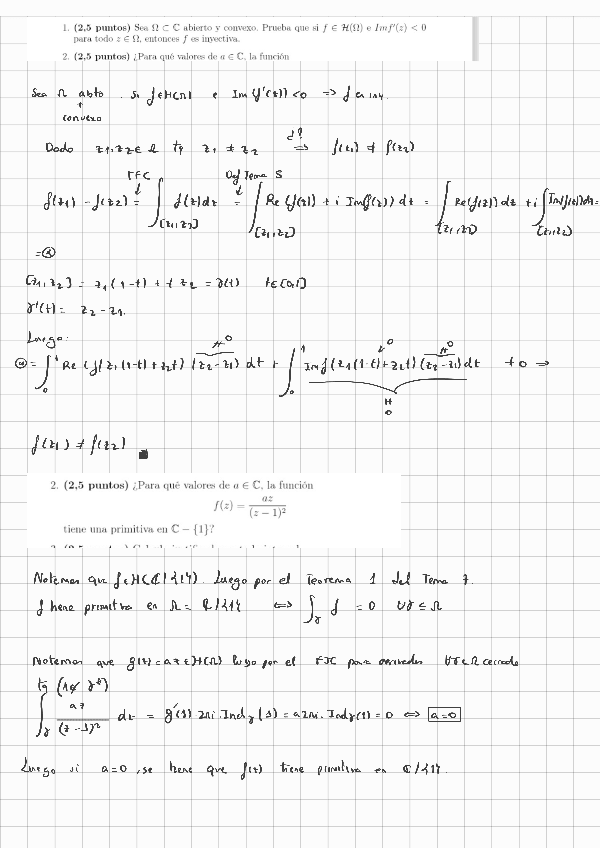 1. (2,5 puntos) Sea Ω ⊂ ℂ abierto y convexo. Prueba que si f ∈ H(Ω) e Imf'(z) < 0
para todo z ∈ Ω, entonces f es inyectiva.
2. (2,5 puntos) ¿Para qué valores de a ∈ ℂ, la función
Sea Ω abto . Si f∈H(Ω) e Im(f'(z))<0 => f es iny.
convexo
Dado z1,z2∈ Ω tq z1 ≠ z2 =>¿? f(z1) ≠ f(z2)
TFC Def Tema 5
f(z1) - f(z2) = ∫[z1,z2] f(z)dz = ∫[z1,z2] Re(f(z)) + i Im(f(z)) dz = ∫[z1,z2] Re(f(z)) dz + i∫[z1,z2] Im(f(z))dz =
= ⊛
[z1,z2] = z1(1-t) + t z2 = γ(t) t∈[0,1]
γ'(t) = z2 - z1.
Luego:
⊛ = ∫₀¹ Re (f(z1(1-t)+z2t) (z2-z1) dt + ∫₀¹ Imf(z1(1-t)+z2t)(z2-z1)dt ≠ 0 =>
f(z1) ≠ f(z2) ■
2. (2,5 puntos) ¿Para qué valores de a ∈ ℂ, la función
f(z) = az/(z − 1)²
tiene una primitiva en ℂ − {1}?
Notemos que f∈H(ℂ\{1}). Luego por el Teorema 1 del Tema 7.
f tiene primitiva en Ω = ℂ\{1} <=> ∫γ f = 0 ∀γ ⊆ Ω
Notemos que g(z)=az∈H(Ω) luego por el FIC para derivadas ∀γ∈Ω cerrado
tq (1∉ γ*)
∫γ az/(z-1)² dz = g'(1) 2πi.Indγ(1) = a2πi. Indγ(1) = 0 <=> a=0
Luego si a=0, se tiene que f(z) tiene primitiva en ℂ\{1}.